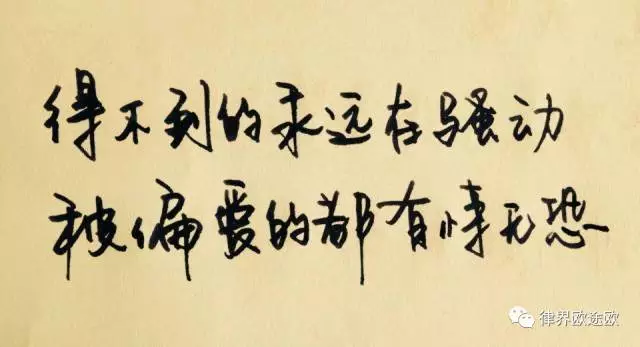 得不到的永远在骚动
被偏爱的都有恃无恐
律界欧途欧